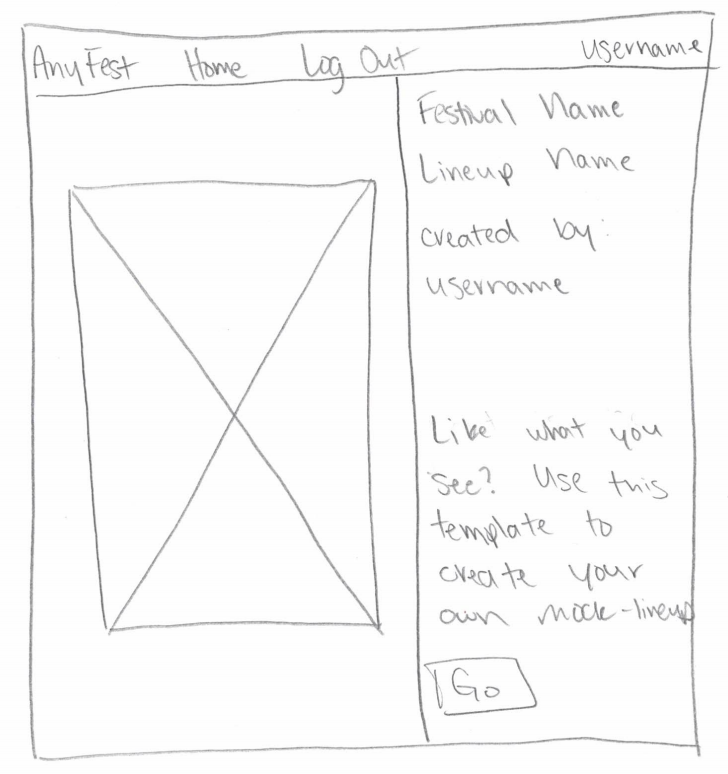 AnyFest Home Log Out username
Festival Name
Lineup Name
created by:
username
Like what you
see? Use this
template to
create your
own mock-lineup
Go